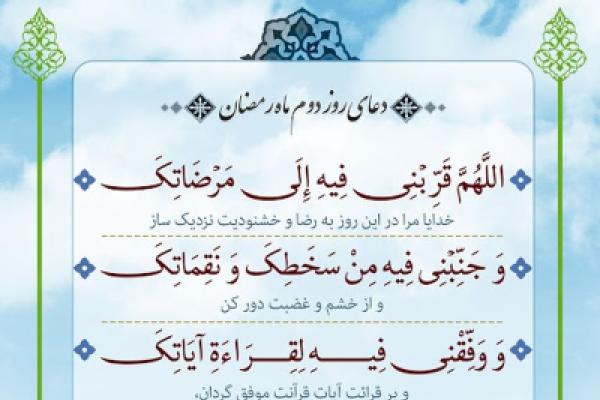 دعای روز دوم ماه رمضان
اللَّهُمَّ قَرِّبْنِی فِیهِ إِلَی مَرْضَاتِکَ
خدایا مرا در این روز به رضا و خشنودیت نزدیک ساز
وَ جَنِّبْنِی فِیهِ مِنْ سَخَطِکَ وَ نَقِمَاتِکَ
و از خشم و غضبت دور کن
وَ وَفِّقْنِی فِیهِ لِقِرَاءَةِ آیَاتِکَ
و بر قرائت آیات قرآنت موفق گردان،